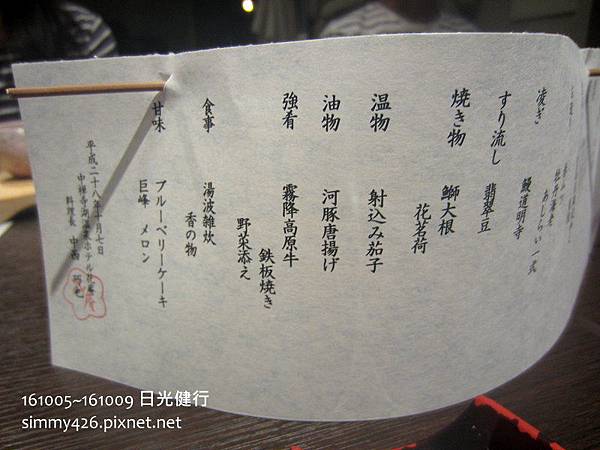 あしらい一式
凌ぎ
鰻道明寺
すり流し
翡翠豆
焼き物
鰤大根
花茗荷
温物
射込み茄子
油物
河豚唐揚げ
強肴
霧降高原牛
鉄板焼き
野菜添え
食事
湯波雑炊
香の物
甘味
ブルーベリーケーキ
巨峰 メロン
平成二十八年十月七日
中禅寺湖温泉ホテル
料理長 中西
161005~161009 日光健行
simmy426.pixnet.net